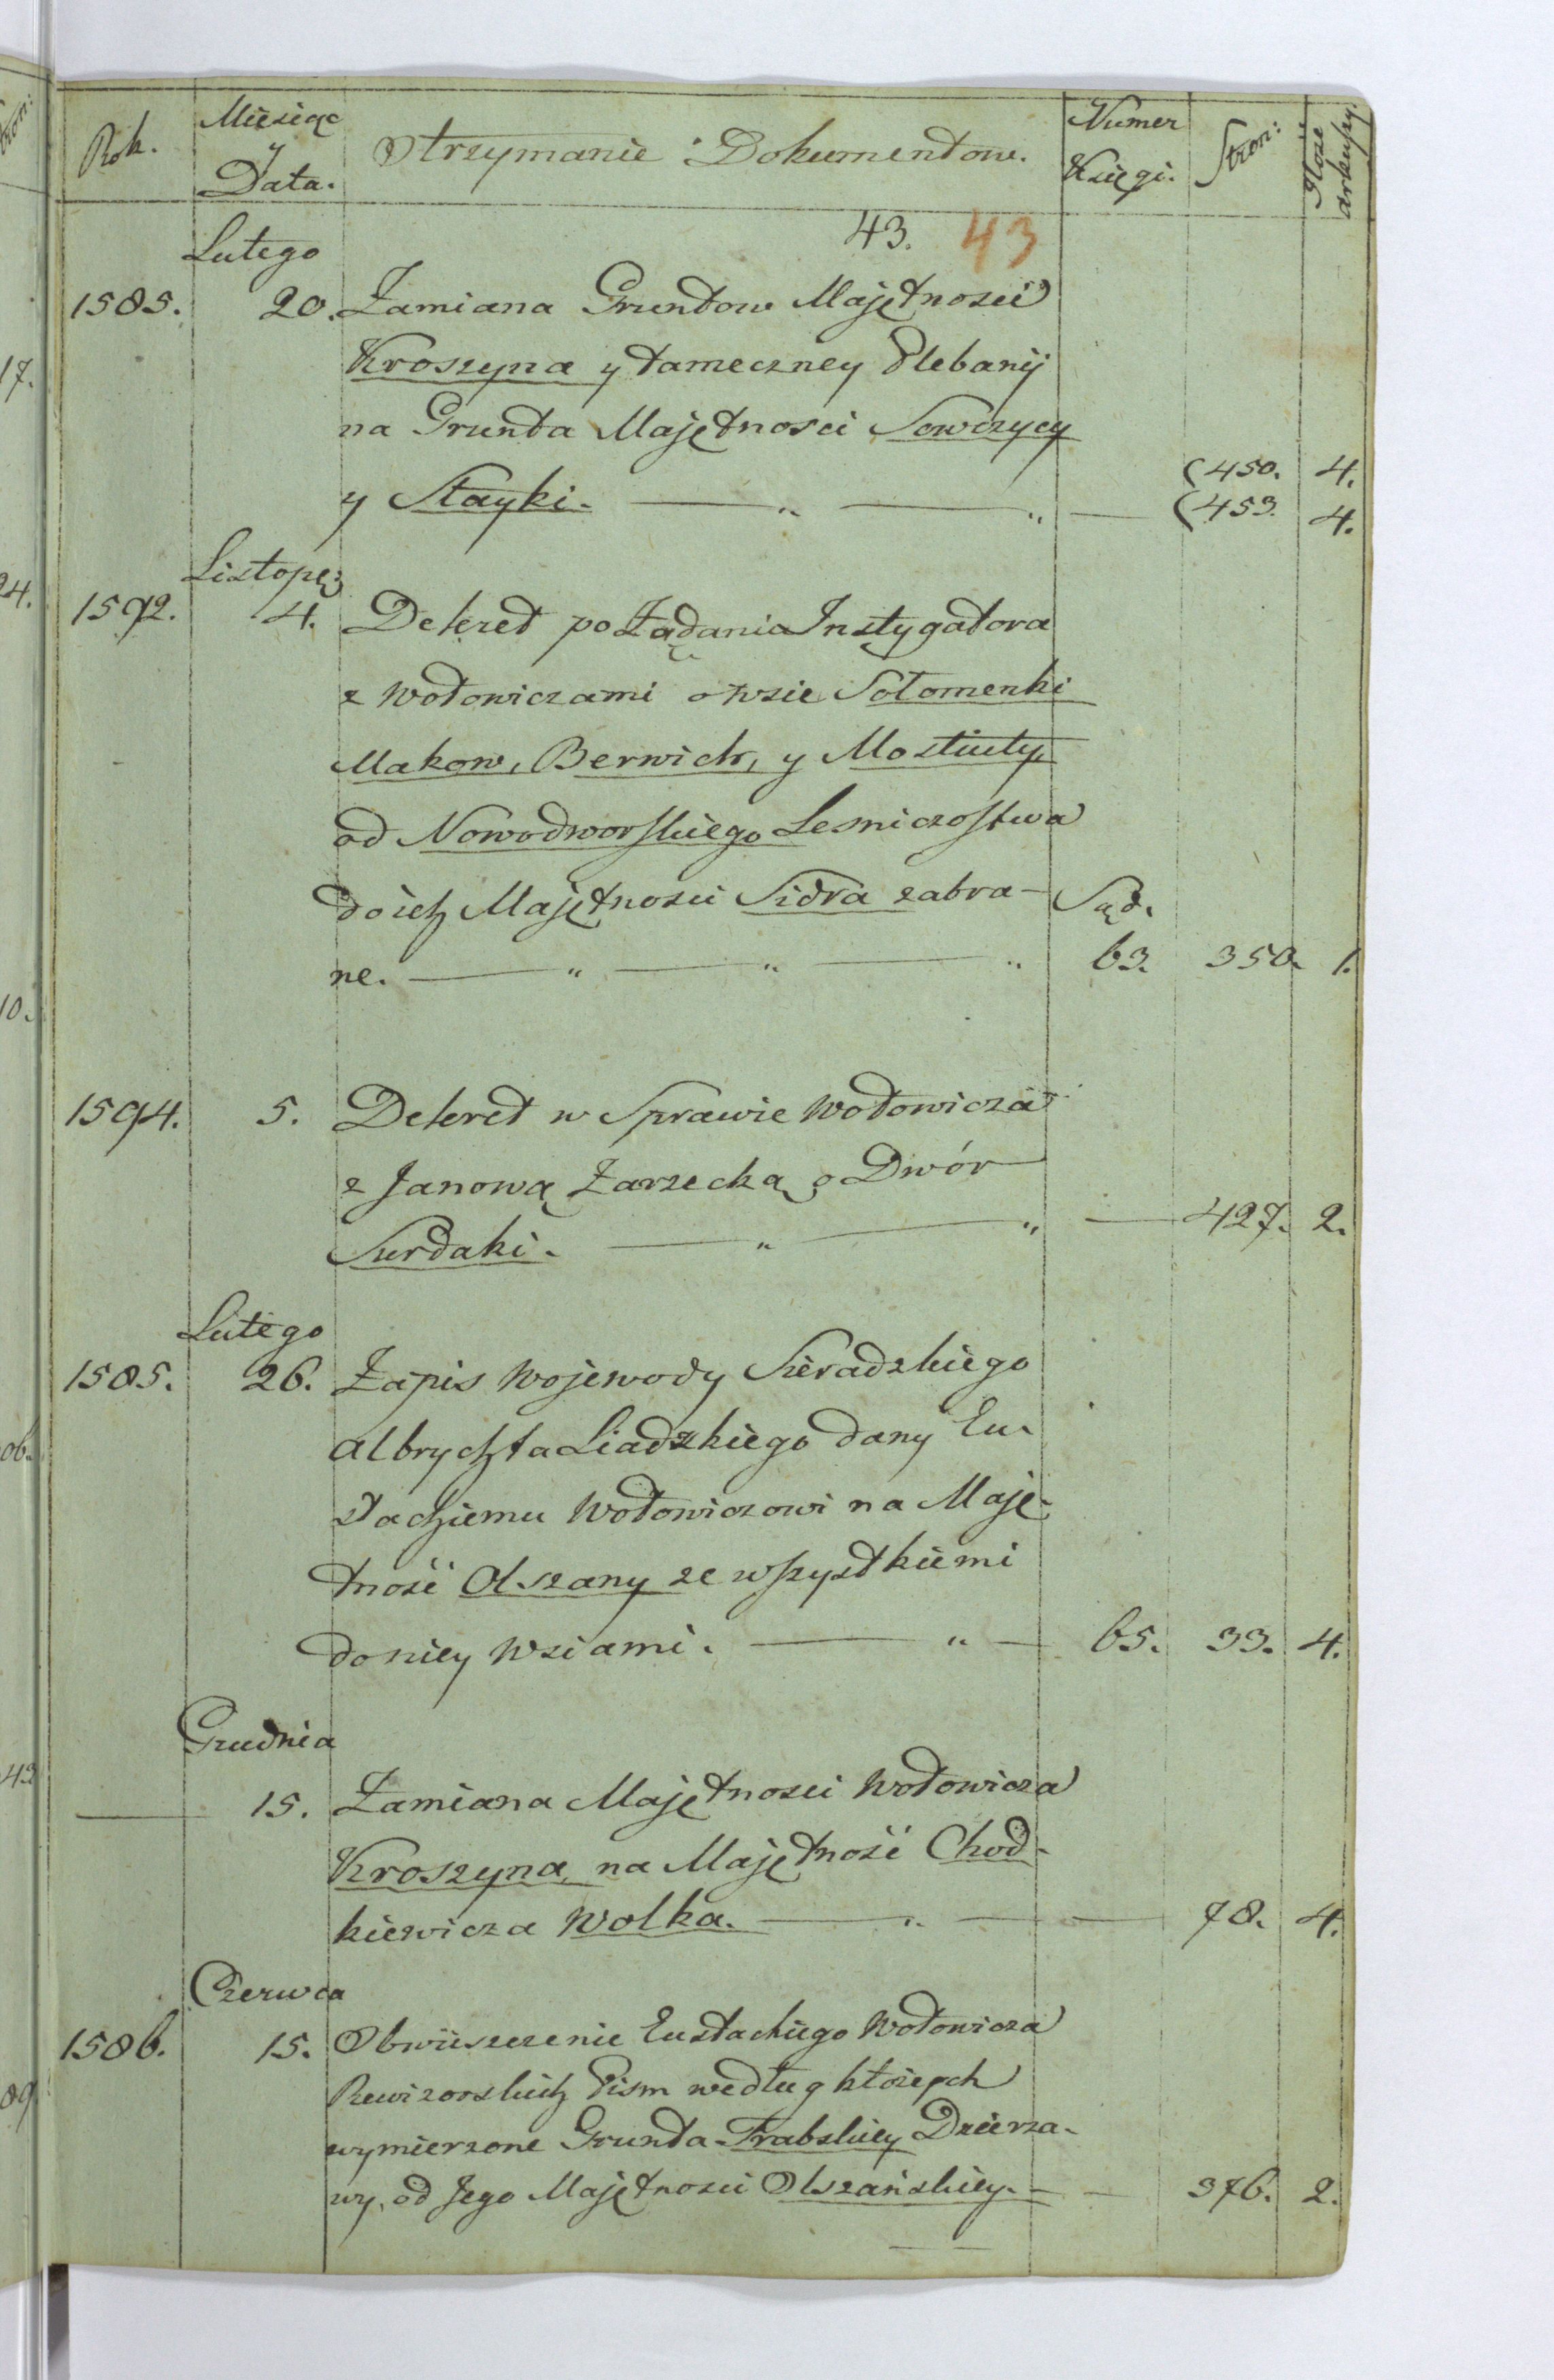 Rok. Miesiąc y Data. Otrzymanie Dokumentow. Numer Księgi. Stron: Ilość arkuszy.
43. 43
Lutego
1585. 20. Zamiana Gruntow Majętnosci
Kroszyna y tameczney Plebanij
na Grunta Majętnosci Sowczycy
y Stayki. — „ — „ — (450. 4.
(453. 4.
Listop:
1592. 4. Dekret po Żądania Instygatora
z Wołowiczami o wsie Sołomenki
Makow, Berwich, y Mostiuty,
od Nowodworskiego Lesniczostwa
do ich Majętnosci Sidra zabra- Sąd.
ne. — „ — „ — „ 63. 350. 1.
1594. 5. Dekret w Sprawie Wołowicza
z Janową Zarzecką o Dwór
Surdaki. — „ — „ — 427. 2.
Lutego
1585. 26. Zapis Wojewody Sieradzkiego
Albrychta Liadzkiego dany Eu-
stachiemu Wołowiczowi na Maję-
tność Olszany ze wszystkiemi
do niey Wsiami. — „ — 65. 33. 4.
Grudnia
— 15. Zamiana Majętnosci Wołowicza
Kroszyna, na Majętność Chod-
kiewicza Wolka. — „ — — 78. 4.
Czerwca
1586. 15. Obwieszczenie Eustachiego Wołowicza
Rewizorskich Pism według ktorych
wymierzone Grunta Trabskiey Dzierza-
wy, od Jego Majętnosci Olszańskiey. — — 376. 2.
17.
24.
10.
06.
43
89